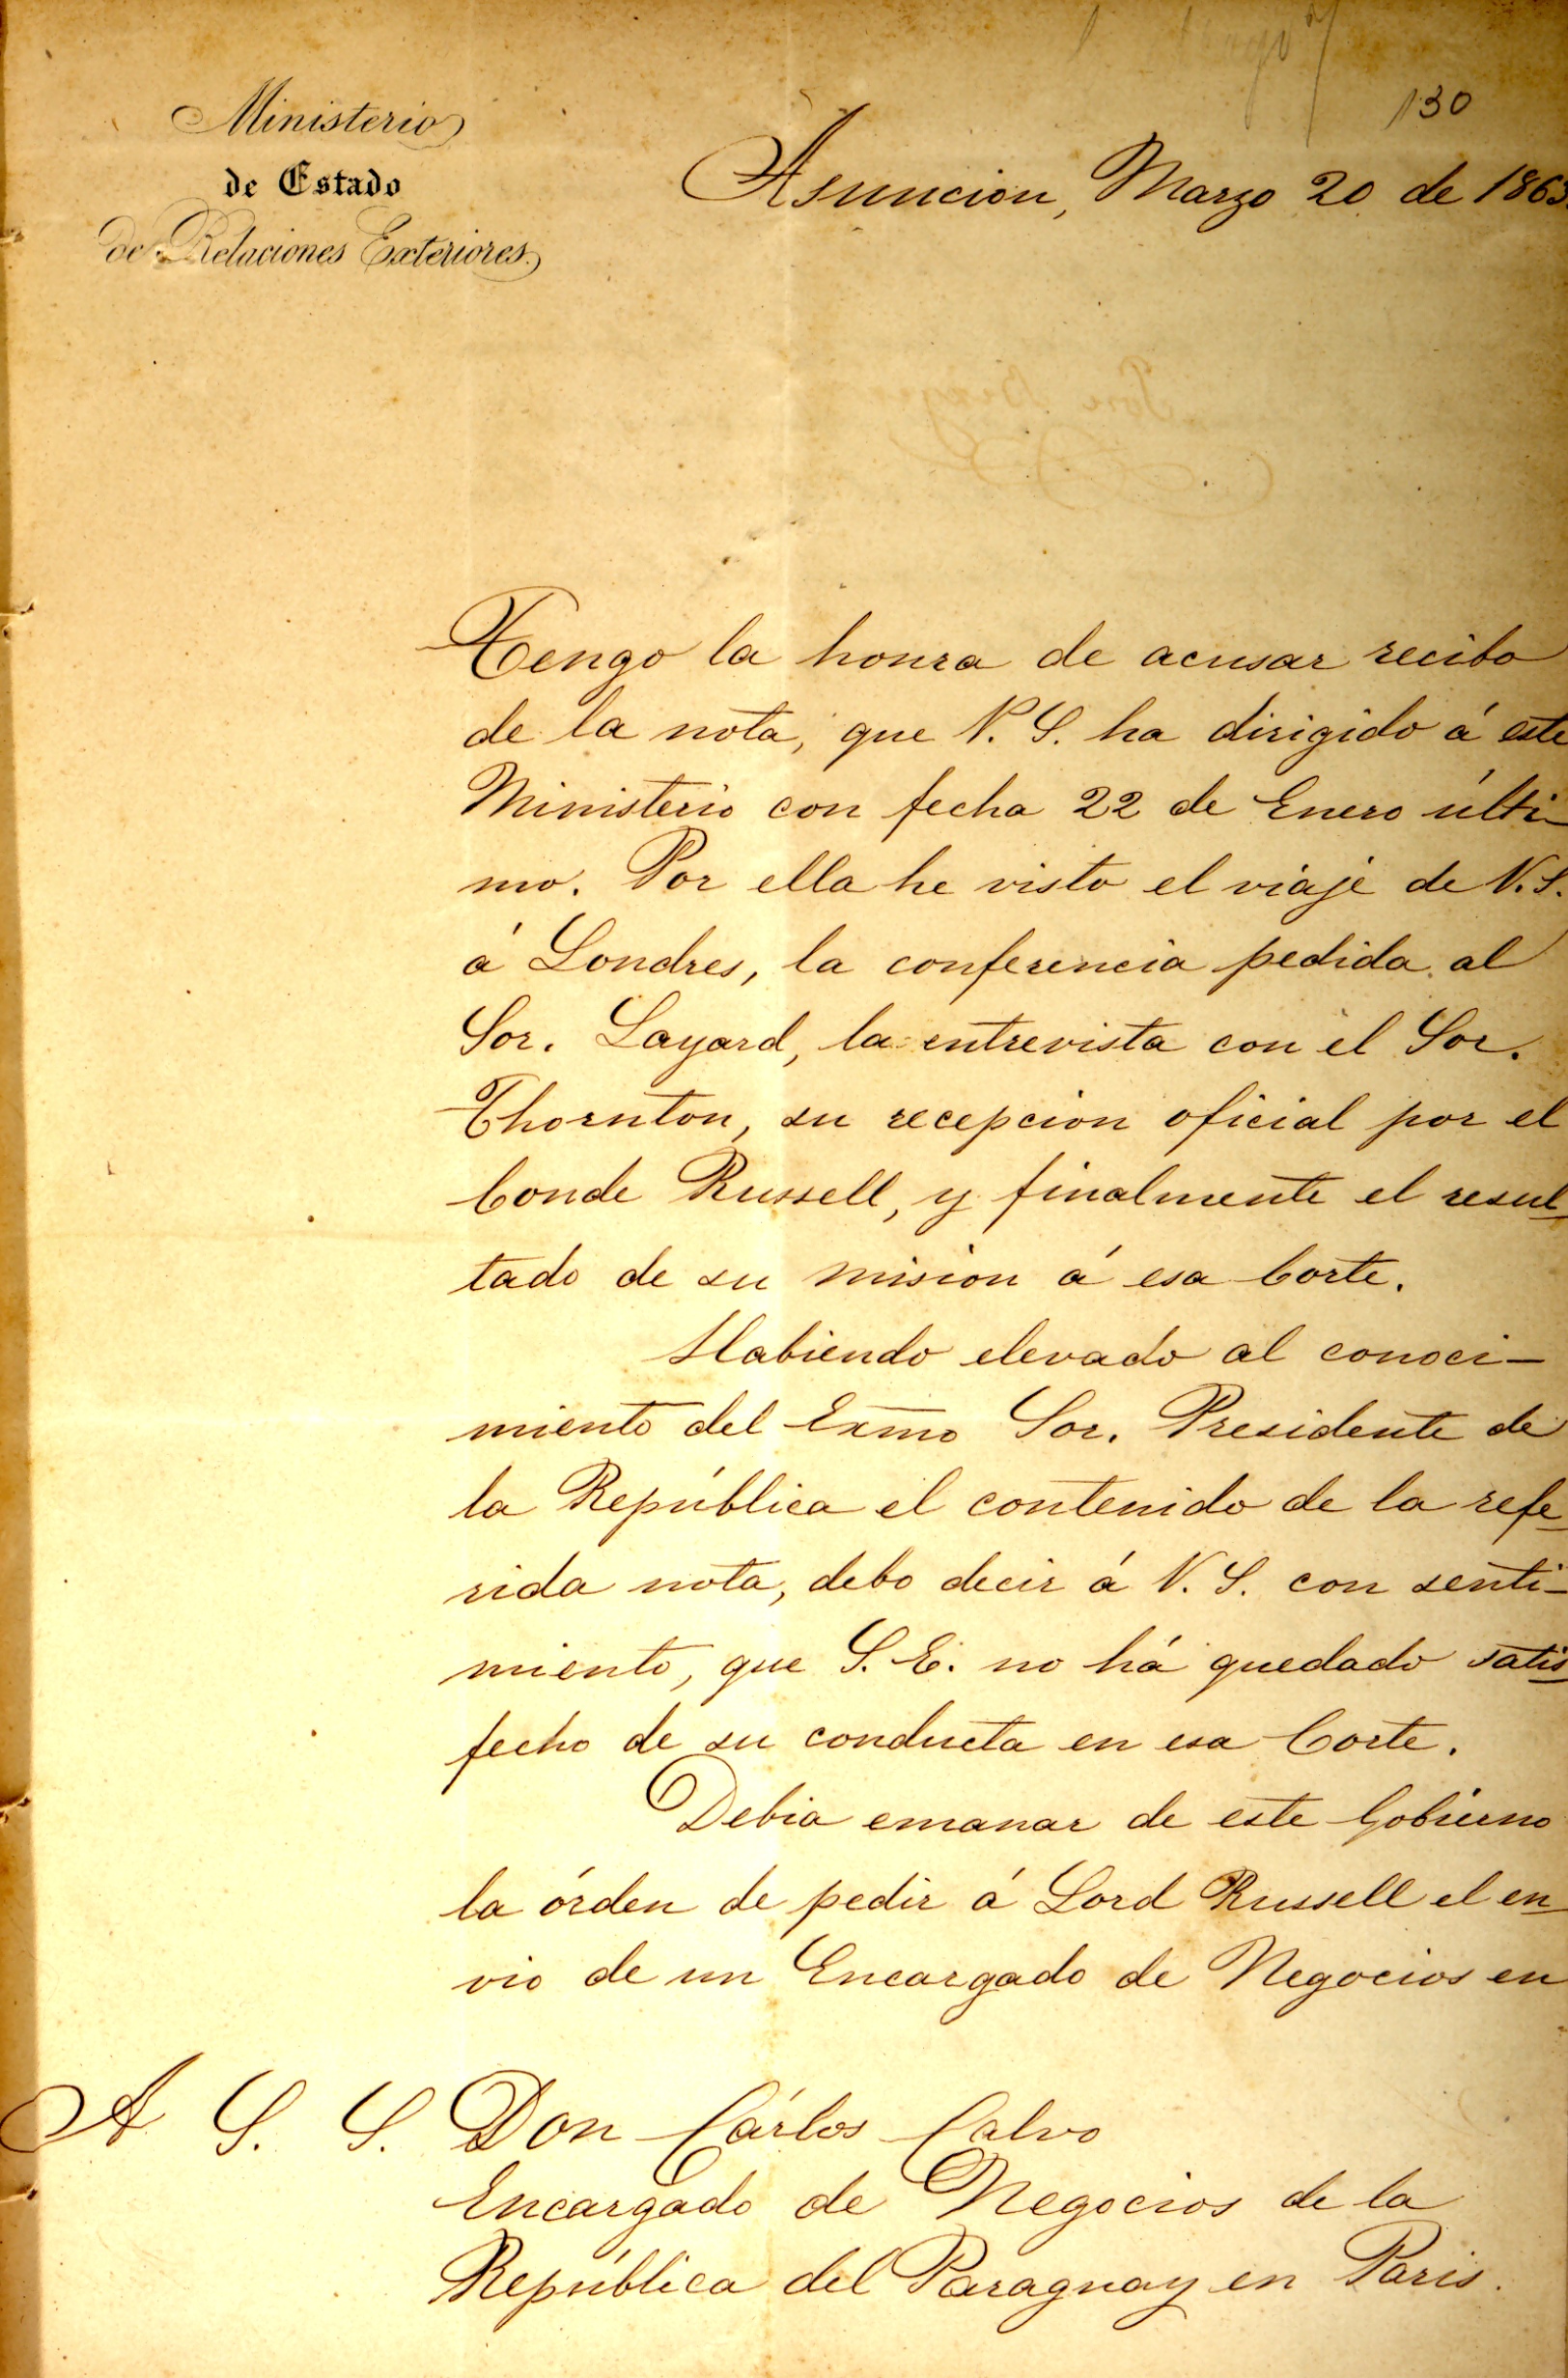 130
Ministerio
de Estado
de Relaciones Exteriores.
Asuncion, Marzo 20 de 1863.
Tengo la honra de acusar recibo
de la nota, que V. S. ha dirigido á este
Ministerio con fecha 22 de Enero últi-
mo. Por ella he visto el viaje de V. S.
á Londres, la conferencia pedida al
Sor. Layard, la entrevista con el Sor.
Thornton, su recepcion oficial por el
Conde Russell, y finalmente el resul-
tado de su mision á esa Corte.
Habiendo elevado al conoci-
miento del Exmo Sor. Presidente de
la República el contenido de la refe-
rida nota, debo decir á V. S. con senti-
miento, que S. E. no há quedado satis-
fecho de su conducta en esa Corte.
Debia emanar de este Gobierno
la órden de pedir á Lord Russell el en-
vio de un Encargado de Negocios en
A S. S. Don Cárlos Calvo
Encargado de Negocios de la
República del Paraguay en Paris.